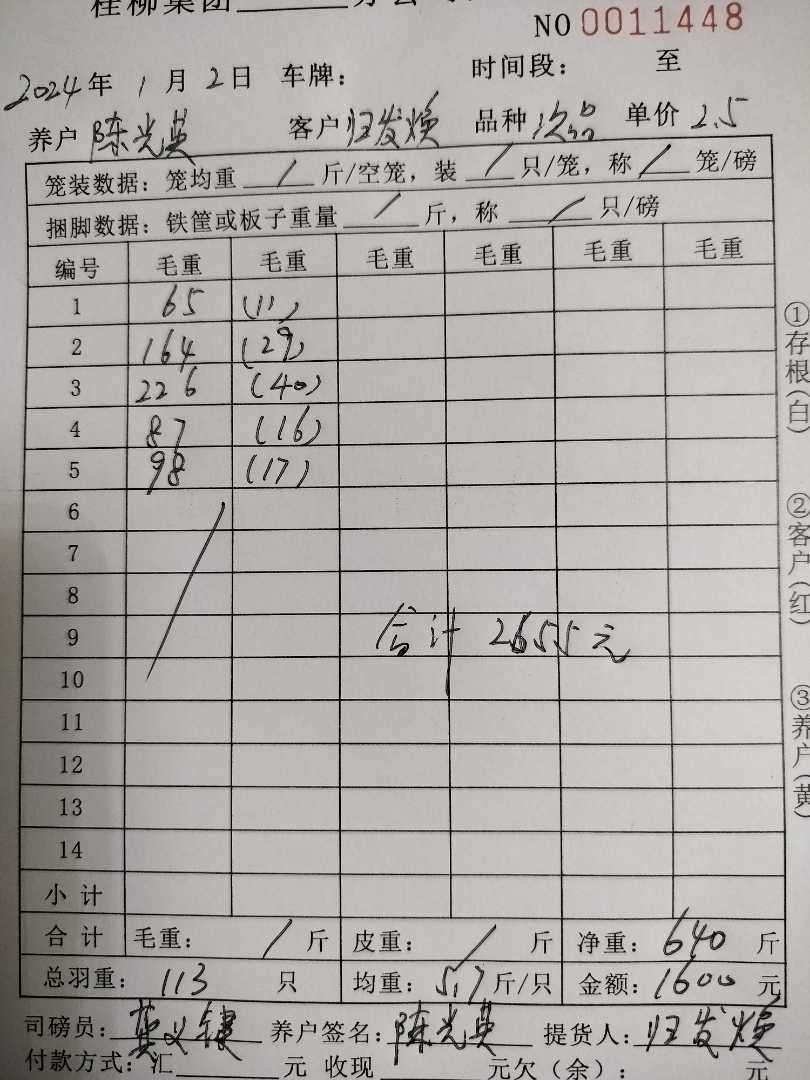 桂柳集团______分公司
NO 0011448
2024年 1月2日 车牌： 时间段： 至
养户 陈光英 客户 归发焕 品种 次品 单价 2.5
笼装数据：笼均重 / 斤/空笼，装 / 只/笼，称 / 笼/磅
捆脚数据：铁筐或板子重量 / 斤，称 / 只/磅
编号 毛重 毛重 毛重 毛重 毛重 毛重
1 65 (11)
2 164 (29)
3 226 (40)
4 87 (16)
5 98 (17)
6
7
8
9 合计 2655元
10
11
12
13
14
小计
合计 毛重： / 斤 皮重： / 斤 净重：640斤
总羽重：113 只 均重：5.7斤/只 金额：1600元
司磅员：义键 养户签名：陈光英 提货人：归发焕
付款方式：汇______元 收现______元欠（余）： 元
①存根（白）
②客户（红）
③养户（黄）